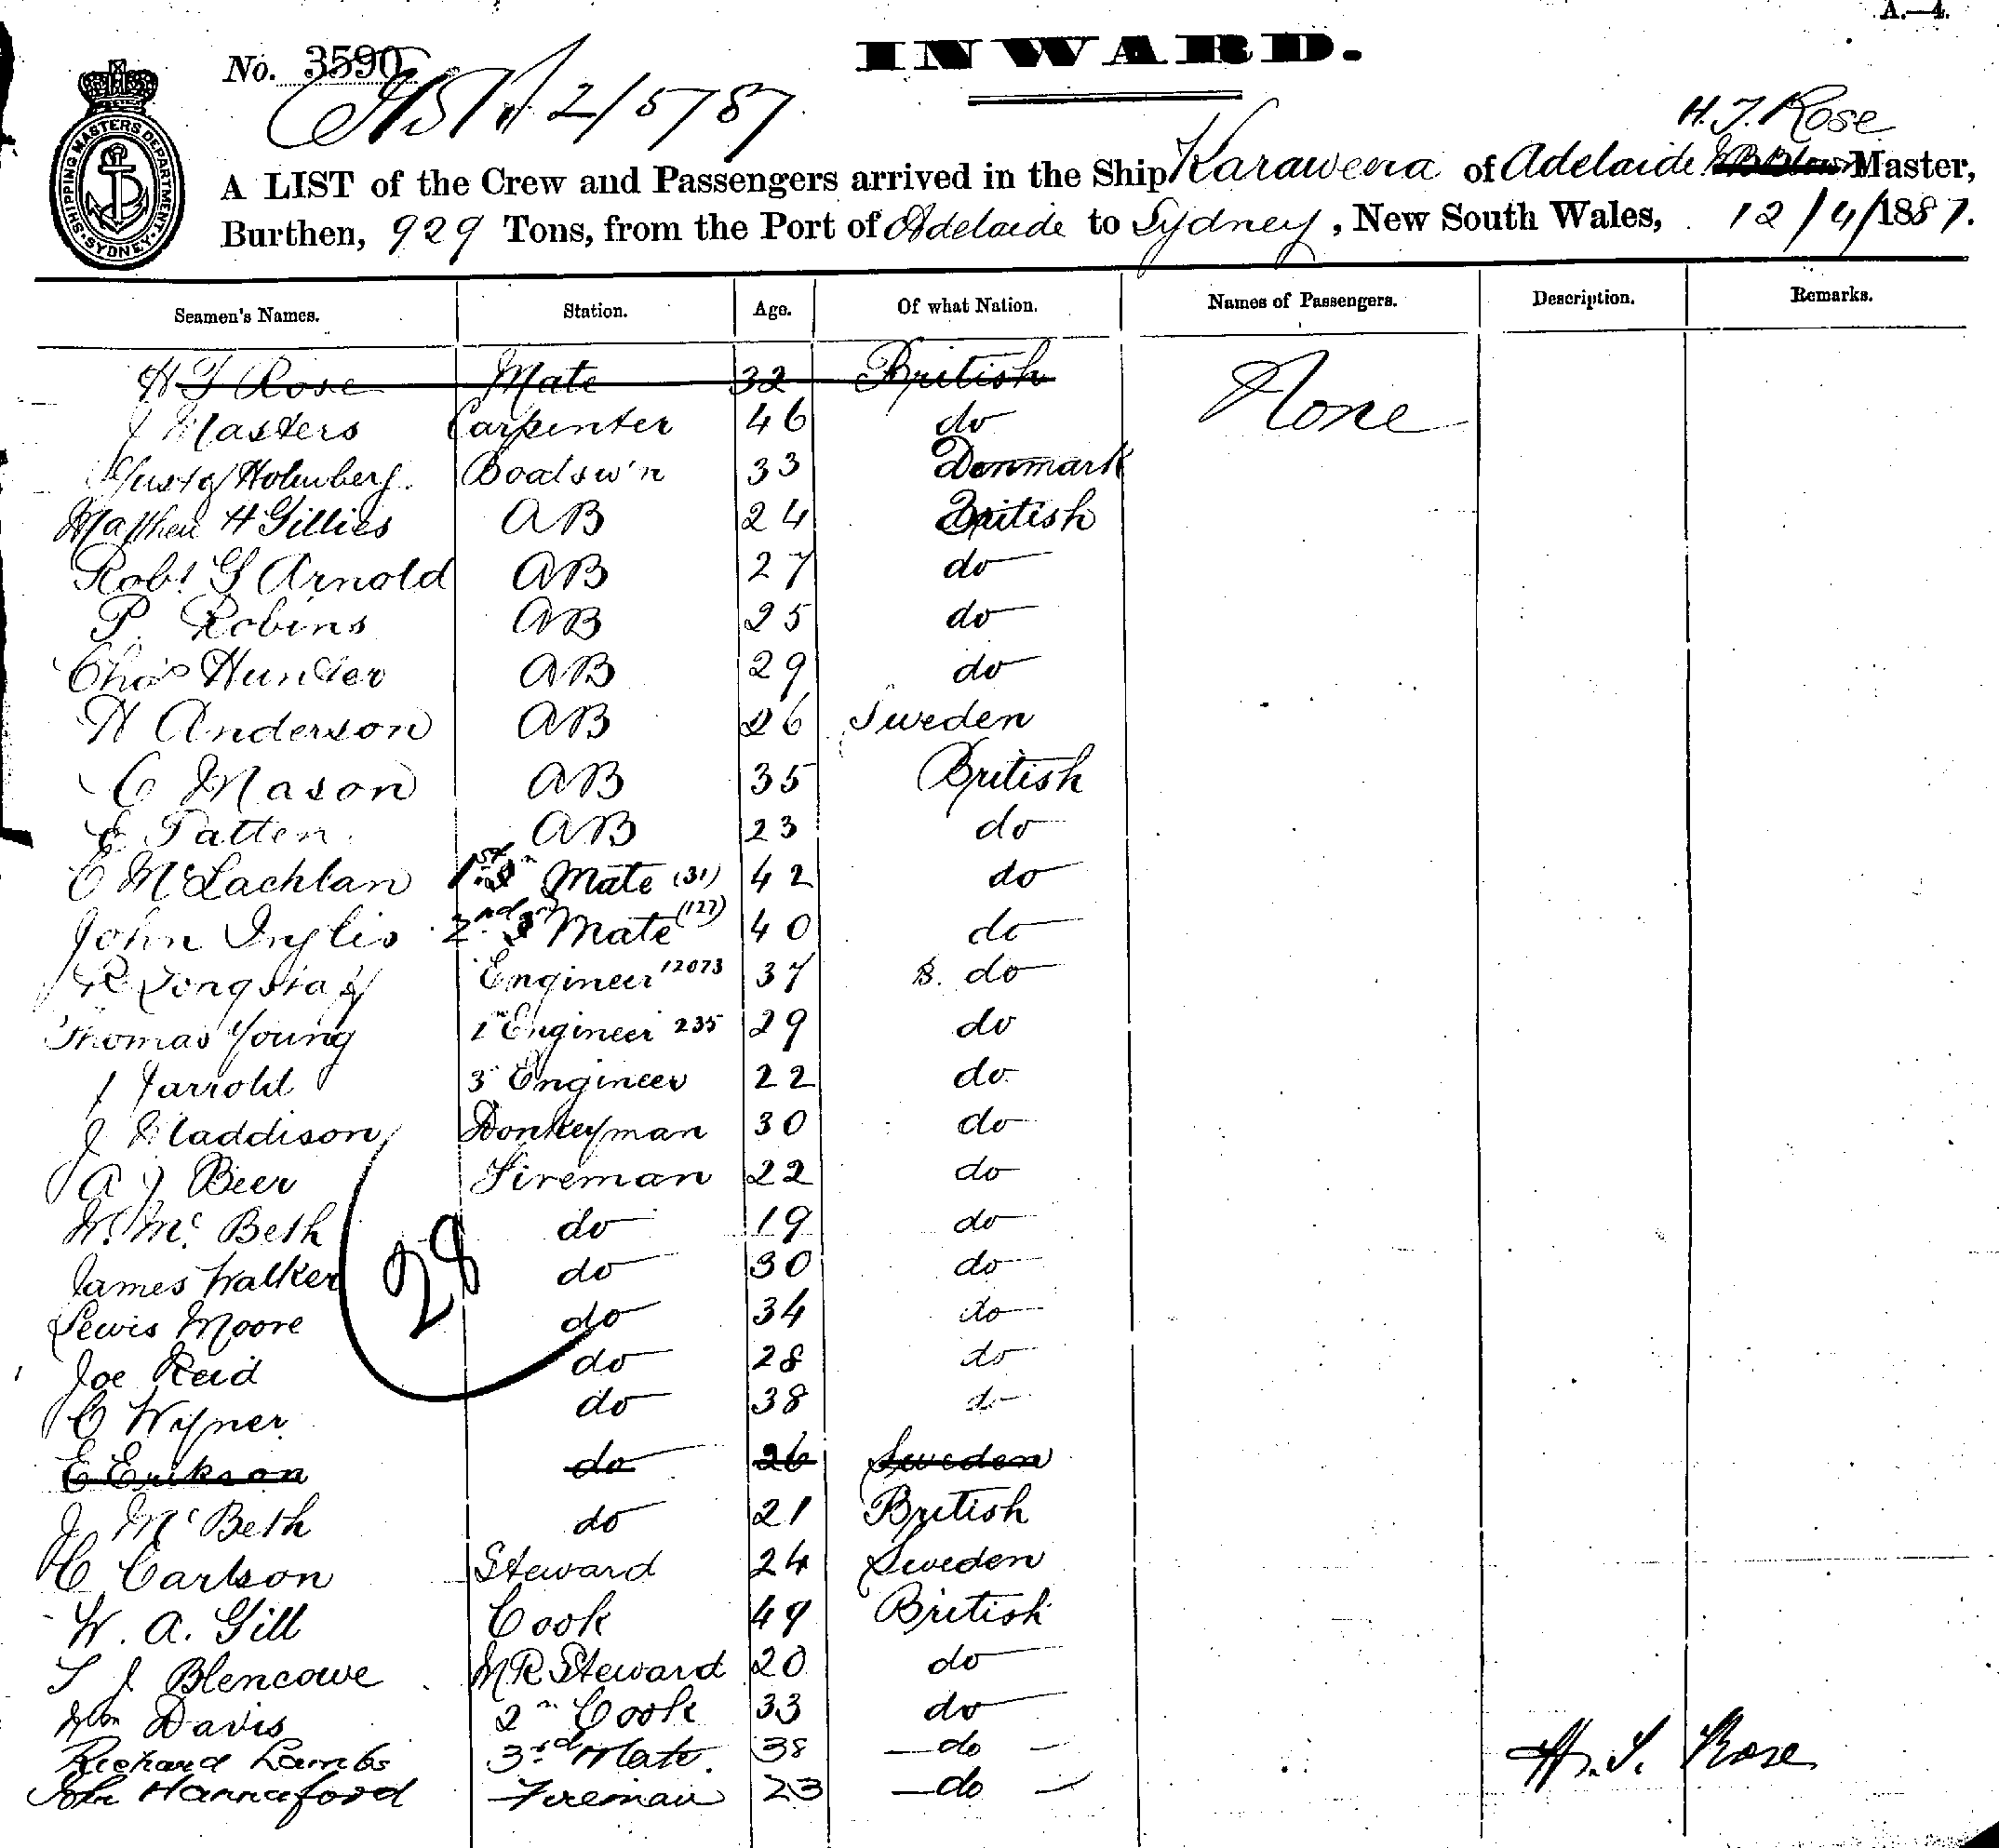 A.—4.
INWARD.
No. 3590
2/5/87
H. T. Rose
SHIPPING MASTERS DEPARTMENT SYDNEY
A LIST of the Crew and Passengers arrived in the Ship Karaweera of Adelaide Master,
Burthen, 929 Tons, from the Port of Adelaide to Sydney, New South Wales, 12/4/1887.
Seamen's Names. Station. Age. Of what Nation. Names of Passengers. Description. Remarks.
H T Rose Mate 32 British None
J Masters Carpenter 46 do
Gustaf Holmberg. Boatsw'n 33 Denmark
Matthew H Gillies AB 24 British
Robt G Arnold AB 27 do
P. Robins AB 25 do
Chas Hunter AB 29 do
H Anderson AB 26 Sweden
C Mason AB 35 British
E Patten AB 23 do
C McLachlan 1st Mate (31) 42 do
John Inglis 2nd Mate (127) 40 do
R Longstaff Engineer 12073 37 B. do
Thomas Young 2n Engineer 235 29 do
J Jarrold 3 Engineer 22 do
J Maddison Donkeyman 30 do
A J Beer Fireman 22 do
W. Mc. Beth do 19 do
28
James Walker do 30 do
Lewis Moore do 34 do
Joe Reid do 28 do
C Wyner do 38 do
E Erikson do 26 Sweden
J McBeth do 21 British
C Carlson Steward 24 Sweden
W. A. Gill Cook 49 British
S J Blencowe M R Steward 20 do
Wm Davis 2n Cook 33 do
Richard Lambs 3rd Mate. 38 do
John Hannaford Fireman 23 do
H. T. Rose